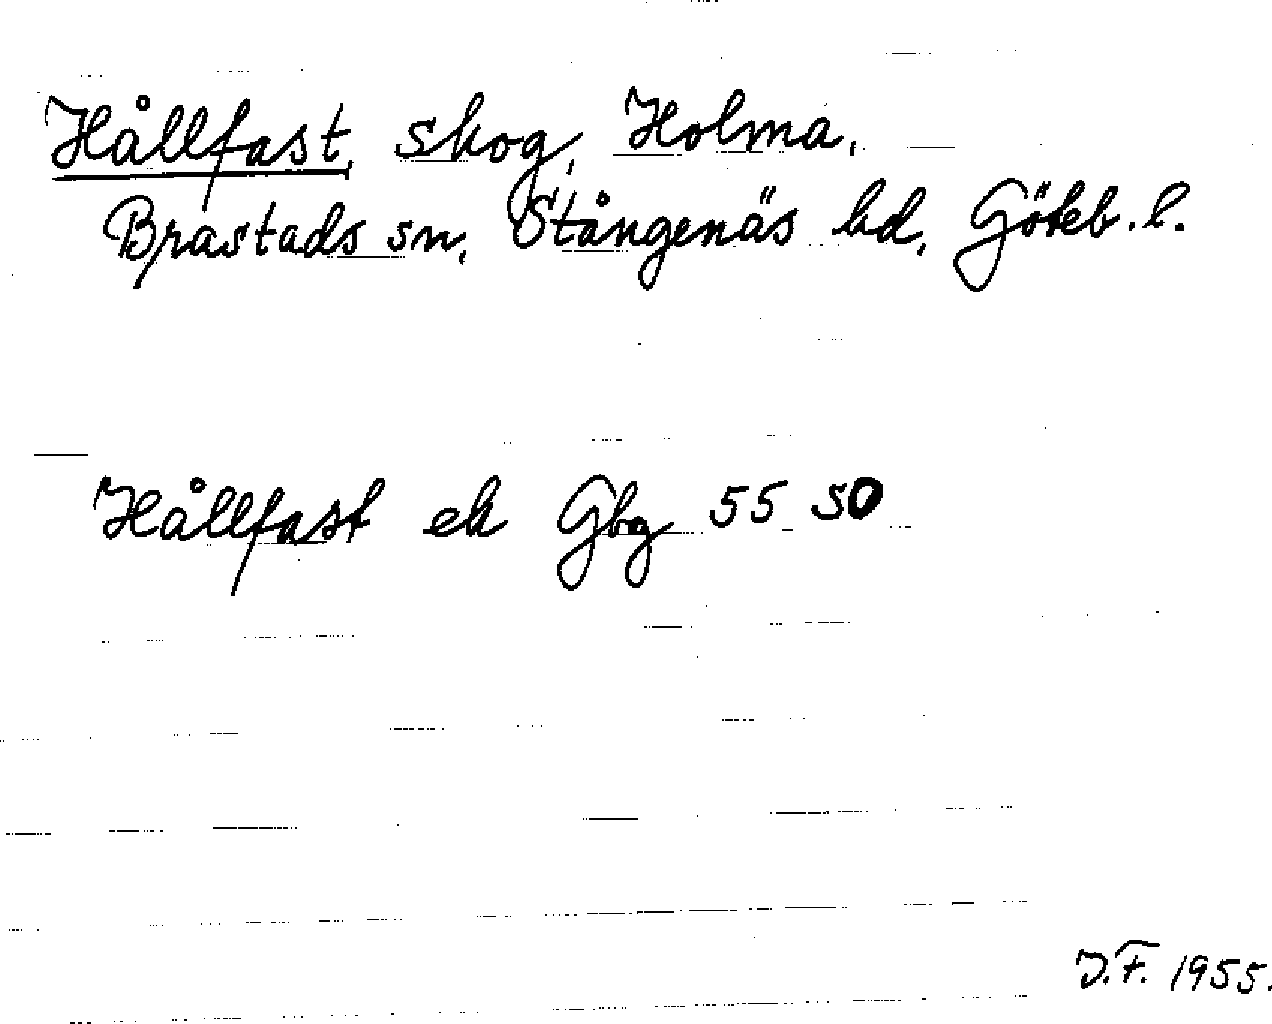 Hållfast, skog, Holma,
Brastads sn, Stångenäs hd, Göteb. l.
Hållfast ek Gbg 55 50
J.F. 1955.